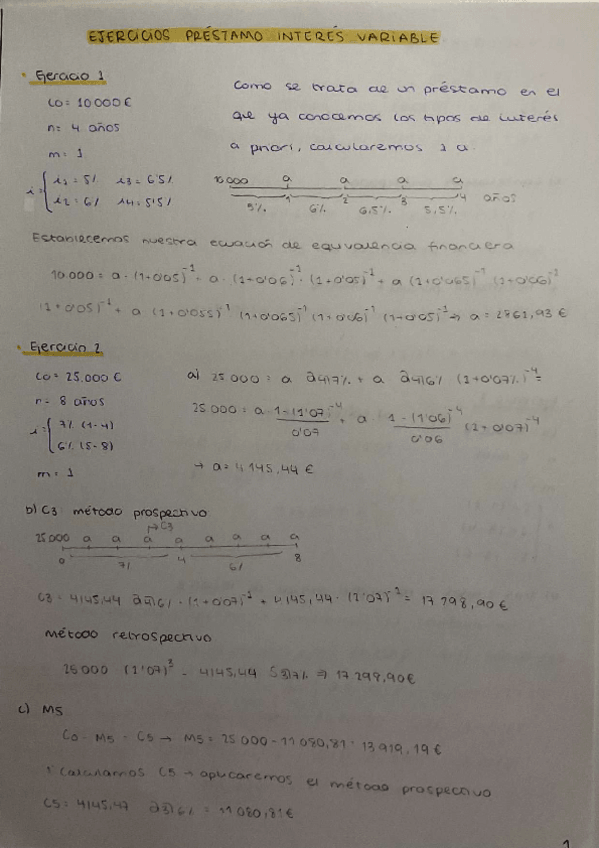 EJERCICIOS PRÉSTAMO INTERÉS VARIABLE
· Ejercicio 1
C0 = 10000€
n = 4 años
m = 1
i = { i1 = 5% i3 = 6'5%
i2 = 6% i4 = 5'5%
Como se trata de un préstamo en el
que ya conocemos los tipos de interés
a priori, calcularemos 1 a.
10.000 a a a a
1 2 3 4 años
5% 6% 6,5% 5,5%
Establecemos nuestra ecuación de equivalencia financiera
10.000 = a · (1+0'05)⁻¹ + a · (1+0'06)⁻¹ · (1+0'05)⁻¹ + a (1+0'065)⁻¹ (1+0'06)⁻¹
(1+0'05)⁻¹ + a (1+0'055)⁻¹ (1+0'065)⁻¹ (1+0'06)⁻¹ (1+0'05)⁻¹ → a = 2861,93 €
· Ejercicio 2
C0 = 25.000 €
n = 8 años
i = { 7% (1-4)
6% (5-8)
m = 1
a) 25 000 = a a4|7% + a a4|6% (1+0'07%)⁻⁴ =
25 000 = a · 1-(1'07)⁻⁴ / 0'07 + a · 1-(1'06)⁻⁴ / 0'06 (1+0'07)⁻⁴
→ a = 4.145,44 €
b) C3 método prospectivo
→C3
25000 a a a a a a a a
0 4 8
7% 6%
C3 = 4145,44 a4|6% · (1+0'07)⁻¹ + 4145,44 · (1'07)⁻¹ = 17 298,90 €
Método retrospectivo
25000 (1'07)³ - 4145,44 S3|7% ⇒ 17 299,90€
c) M5
C0 - M5 = C5 → M5 = 25 000 - 11 080,81 = 13 919,19 €
1º Calculamos C5 → aplicaremos el método prospectivo
C5 = 4145,47 a3|6% = 11 080,81€
1